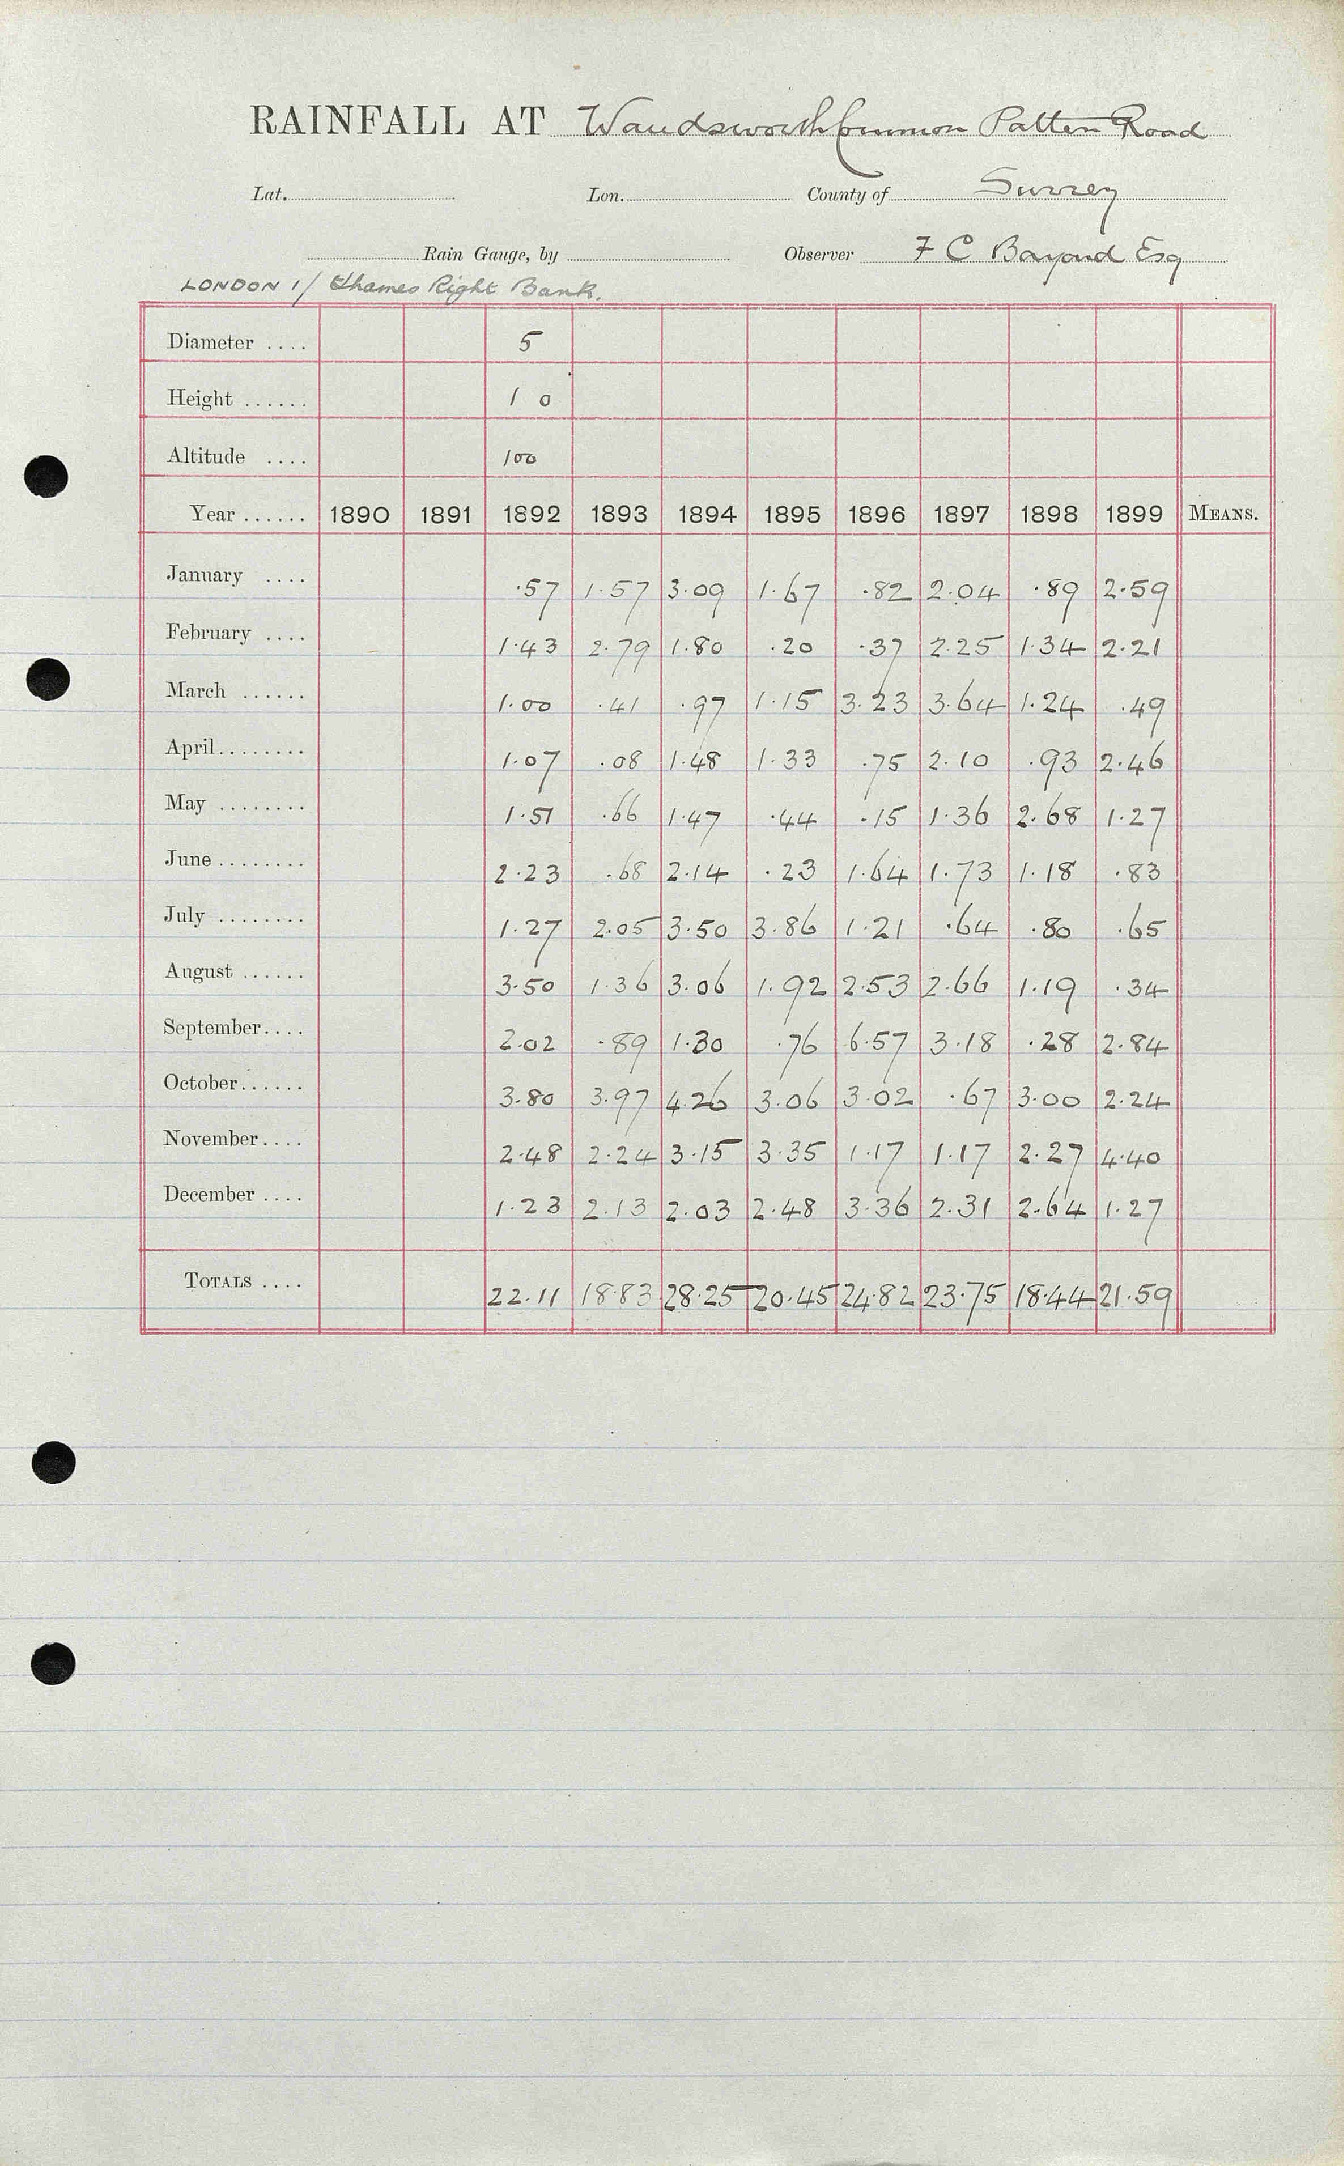 RAINFALL AT Wandsworth Common Patten Road
Lat. Lon. County of Surrey
Rain Gauge, by Observer F C Bayard Esq
LONDON 1/ Thames Right Bank.
Diameter .... 5
Height ...... 1 0
Altitude .... 100
Year ...... 1890 1891 1892 1893 1894 1895 1896 1897 1898 1899 MEANS.
January .... .57 1.57 3.09 1.67 .82 2.04 .89 2.59
February .... 1.43 2.79 1.80 .20 .37 2.25 1.34 2.21
March ...... 1.00 .41 .97 1.15 3.23 3.64 1.24 .49
April........ 1.07 .08 1.48 1.33 .75 2.10 .93 2.46
May ........ 1.51 .66 1.47 .44 .15 1.36 2.68 1.27
June ........ 2.23 .68 2.14 .23 1.64 1.73 1.18 .83
July ........ 1.27 2.05 3.50 3.86 1.21 .64 .80 .65
August ...... 3.50 1.36 3.06 1.92 2.53 2.66 1.19 .34
September.... 2.02 .89 1.30 .76 6.57 3.18 .28 2.84
October...... 3.80 3.97 4.26 3.06 3.02 .67 3.00 2.24
November.... 2.48 2.24 3.15 3.35 1.17 1.17 2.27 4.40
December .... 1.23 2.13 2.03 2.48 3.36 2.31 2.64 1.27
TOTALS .... 22.11 18.83 28.25 20.45 24.82 23.75 18.44 21.59